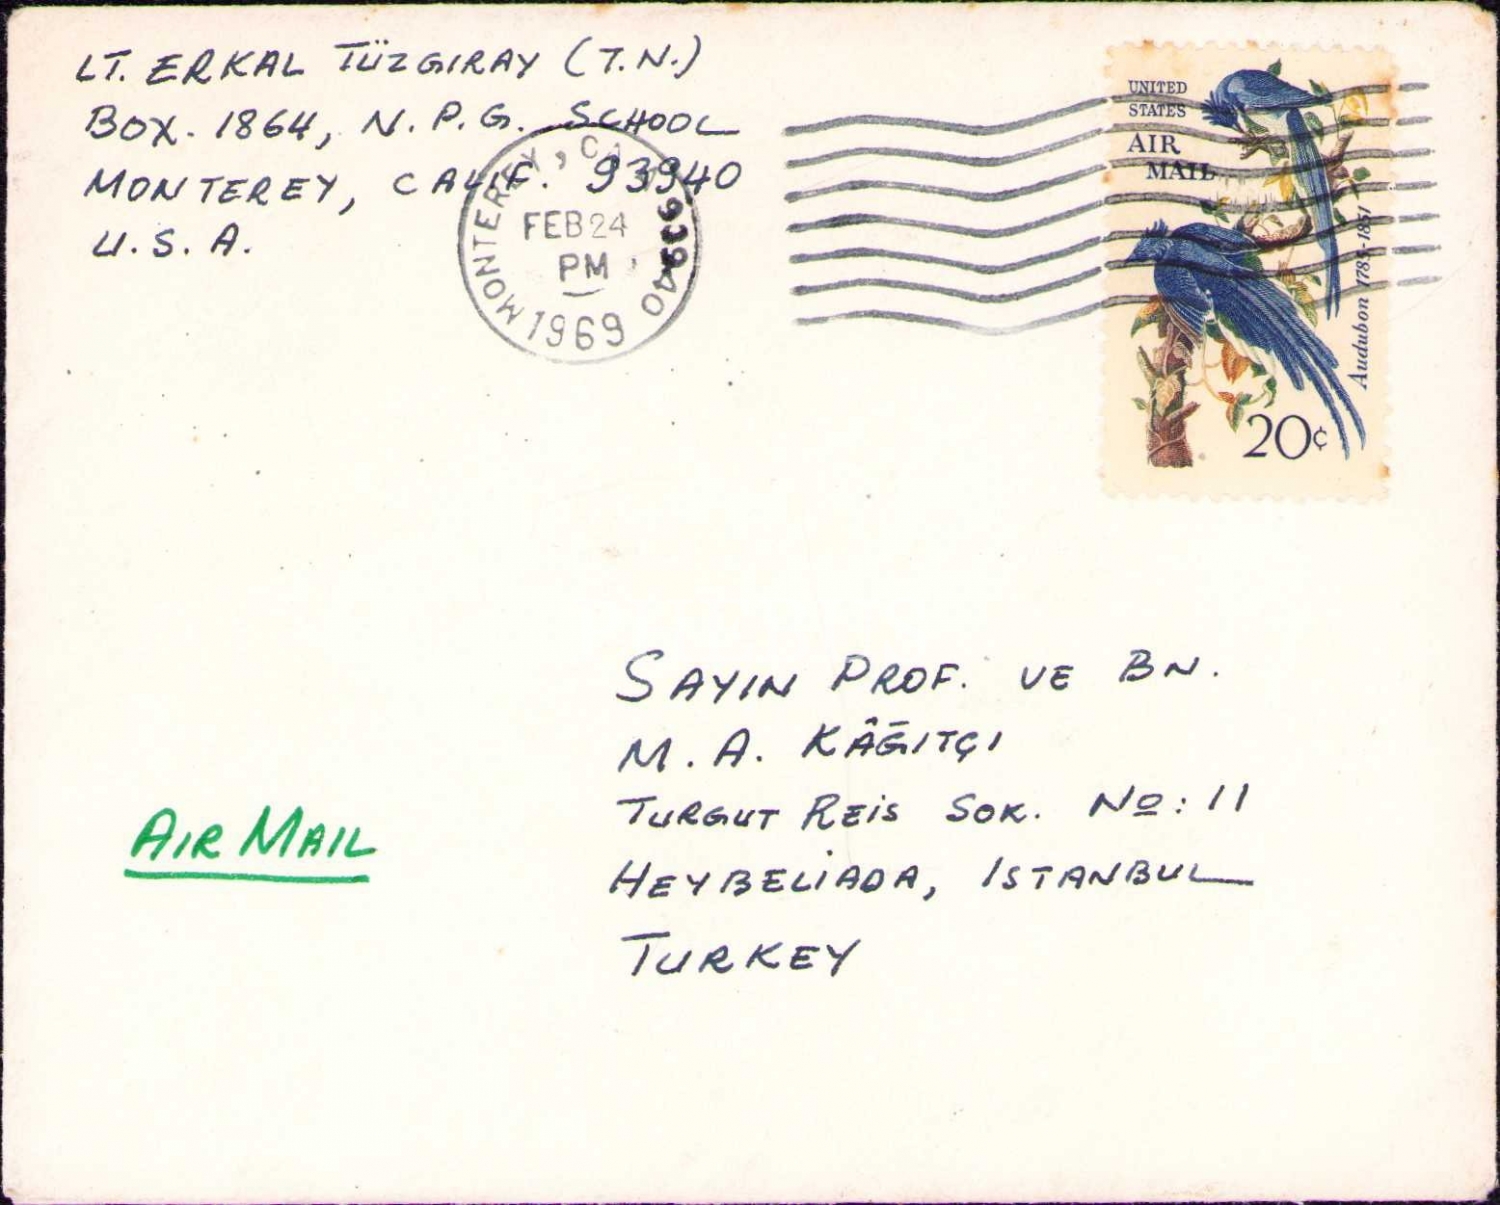 LT. ERKAL TÜZGIRAY (T.N.)
BOX. 1864, N.P.G. SCHOOL
MONTEREY, CALIF. 93940
U.S.A.
MONTEREY, CA 93940
FEB 24
PM
1969
UNITED
STATES
AIR
MAIL
Audubon 1785-1851
20¢
SAYIN PROF. VE BN.
M. A. KÂĞITÇI
TURGUT REiS SOK. No: 11
HEYBELİADA, ISTANBUL
TURKEY
AIR MAIL